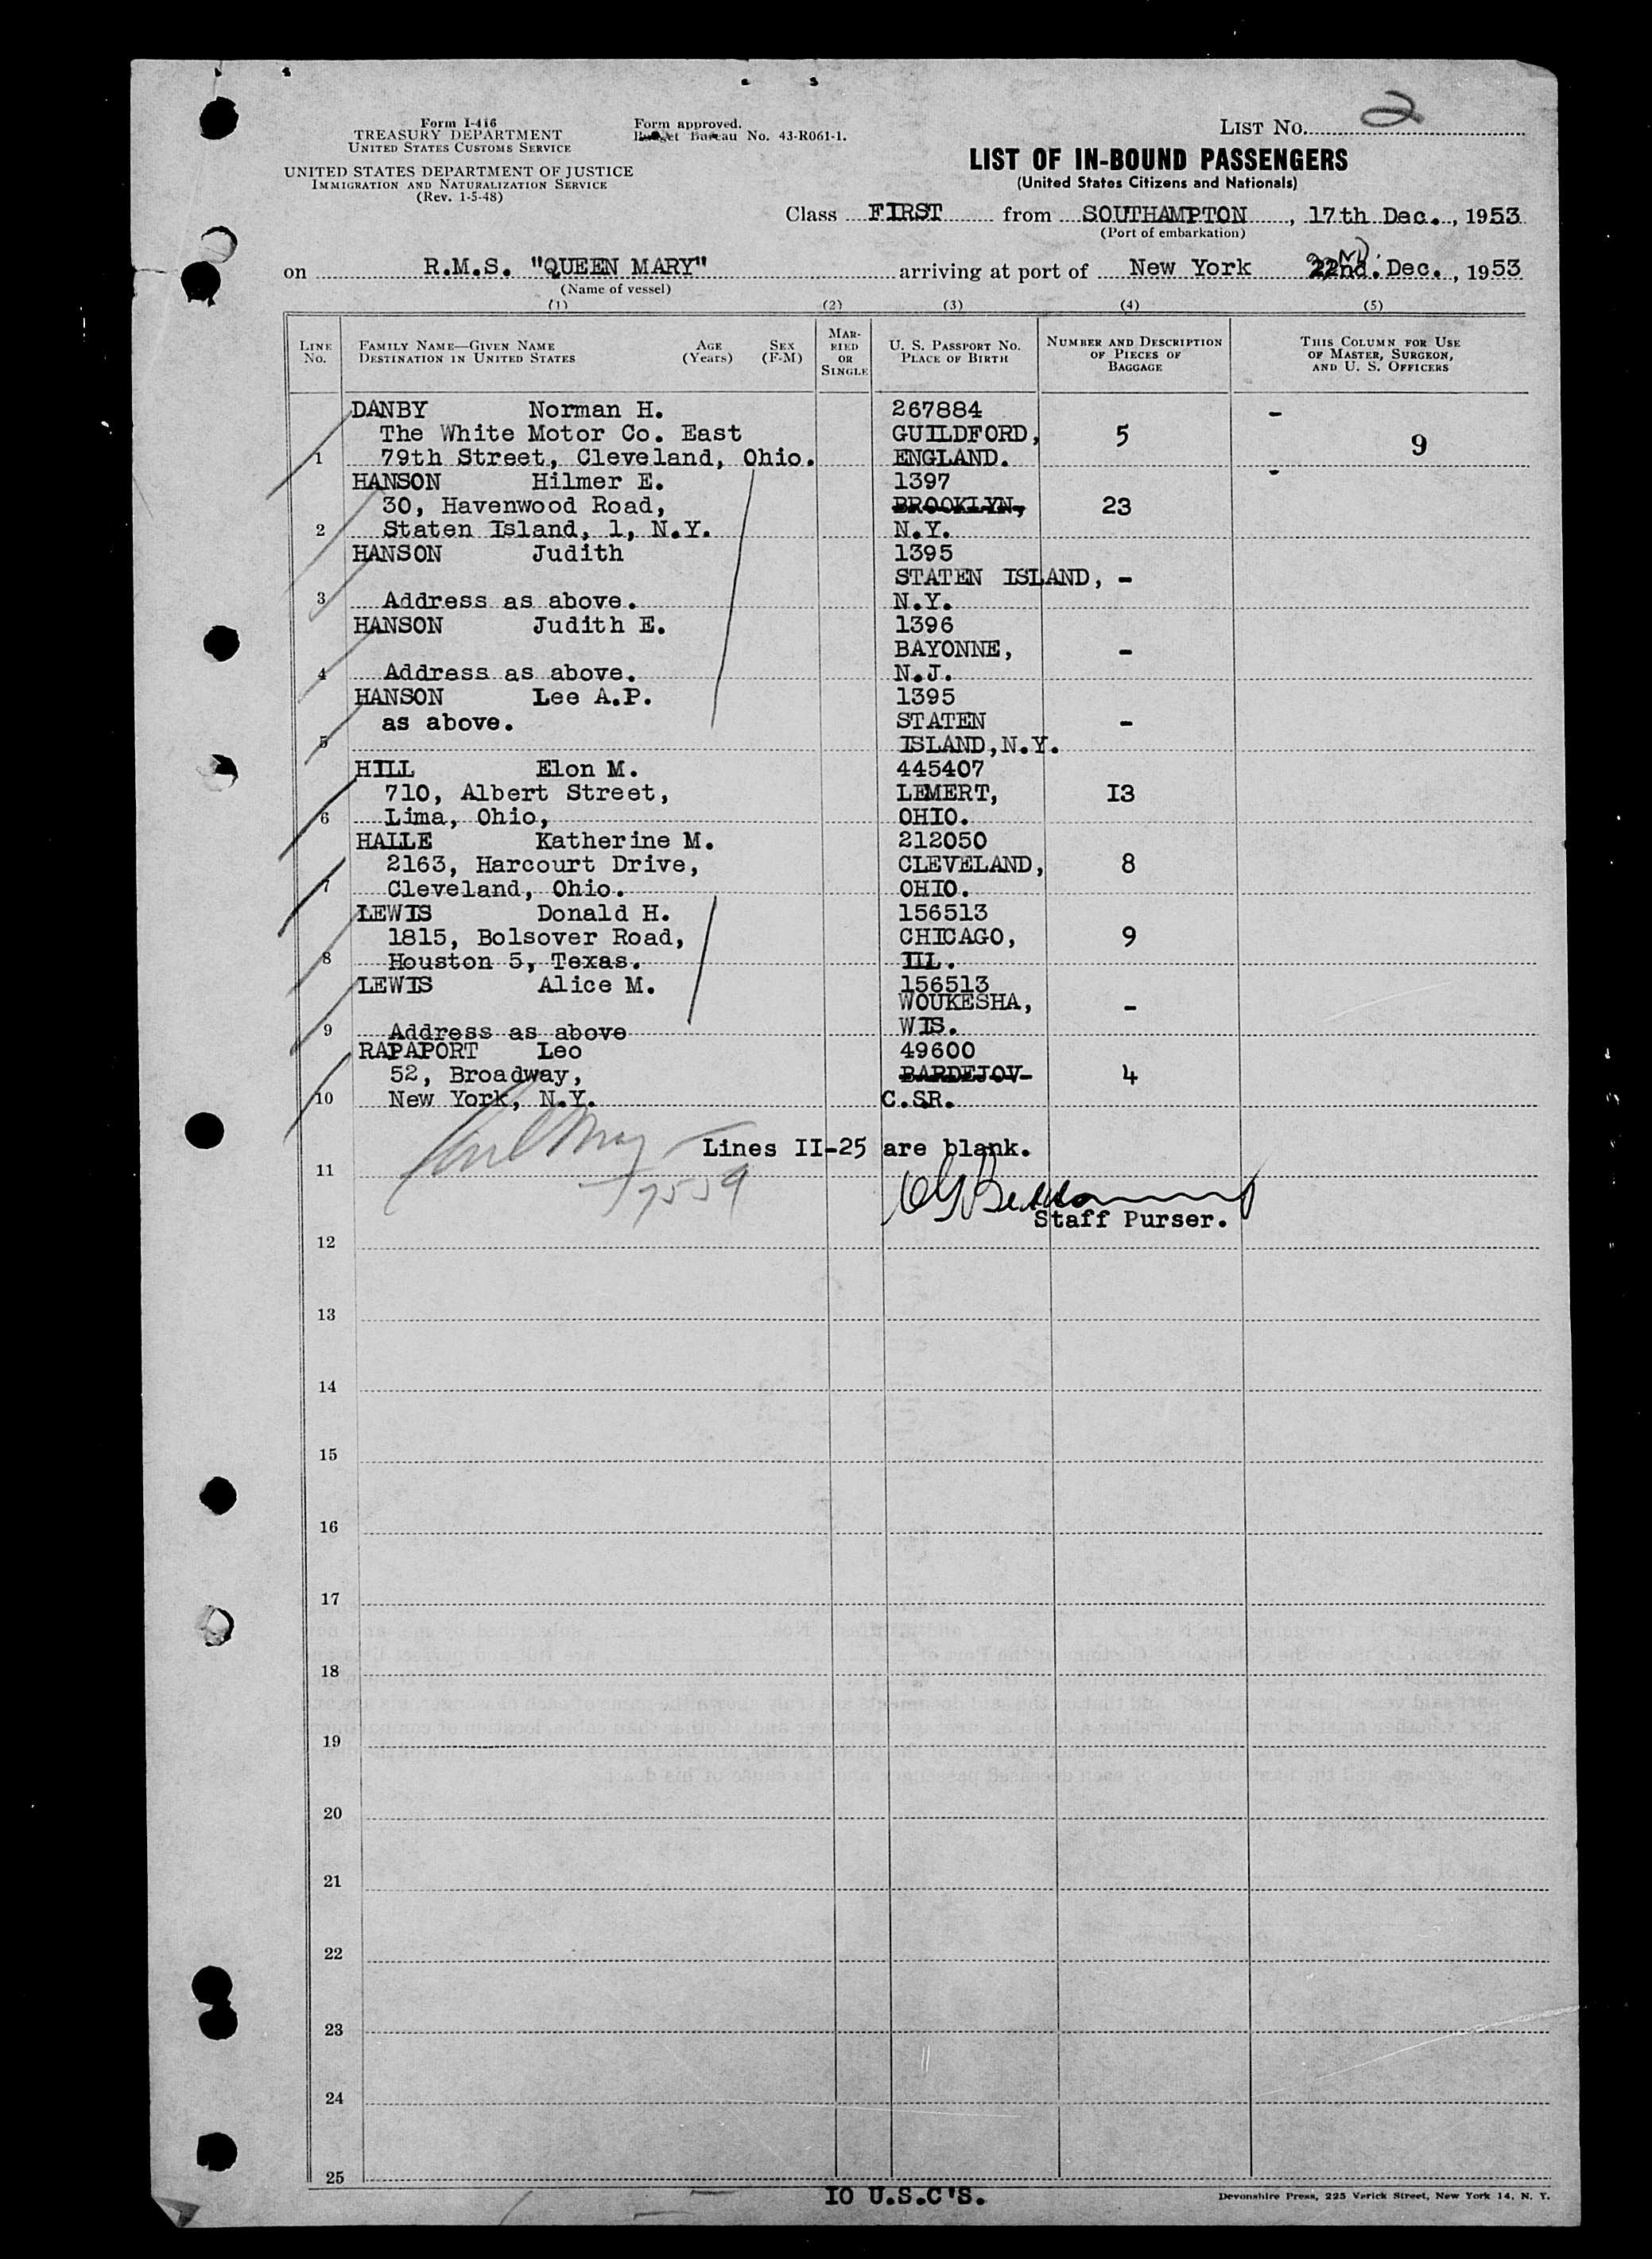 Form I-416
TREASURY DEPARTMENT
UNITED STATES CUSTOMS SERVICE
UNITED STATES DEPARTMENT OF JUSTICE
IMMIGRATION AND NATURALIZATION SERVICE
(Rev. 1-5-48)
Form approved.
Budget Bureau No. 43-R061-1.
LIST No. 2
LIST OF IN-BOUND PASSENGERS
(United States Citizens and Nationals)
Class FIRST from SOUTHAMPTON, 17th Dec., 1953
(Port of embarkation)
on R.M.S. "QUEEN MARY" arriving at port of New York 22nd. Dec., 1953
(Name of vessel)
(1) (2) (3) (4) (5)
LINE No. FAMILY NAME—GIVEN NAME DESTINATION IN UNITED STATES AGE (Years) SEX (F-M) MARRIED OR SINGLE U. S. PASSPORT No. PLACE OF BIRTH NUMBER AND DESCRIPTION OF PIECES OF BAGGAGE THIS COLUMN FOR USE OF MASTER, SURGEON, AND U. S. OFFICERS
DANBY Norman H. 267884 -
The White Motor Co. East GUILDFORD, 5 9
1 79th Street, Cleveland, Ohio. ENGLAND.
HANSON Hilmer E. 1397 -
30, Havenwood Road, BROOKLYN, 23
2 Staten Island, 1, N.Y. N.Y.
HANSON Judith 1395
STATEN ISLAND, -
3 Address as above. N.Y.
HANSON Judith E. 1396
BAYONNE, -
4 Address as above. N.J.
HANSON Lee A.P. 1395
as above. STATEN -
5 ISLAND,N.Y.
HILL Elon M. 445407
710, Albert Street, LEMERT, I3
6 Lima, Ohio, OHIO.
HALLE Katherine M. 212050
2163, Harcourt Drive, CLEVELAND, 8
7 Cleveland, Ohio. OHIO.
LEWIS Donald H. 156513
1815, Bolsover Road, CHICAGO, 9
8 Houston 5, Texas. ILL.
LEWIS Alice M. 156513
WOUKESHA, -
9 Address as above WIS.
RAPAPORT Leo 49600
52, Broadway, BARDEJOV 4
10 New York, N.Y. C.SR.
Lines II-25 are blank.
11
7559
Staff Purser.
12
13
14
15
16
17
18
19
20
21
22
23
24
25
IO U.S.C'S.
Devonshire Press, 225 Varick Street, New York 14, N. Y.